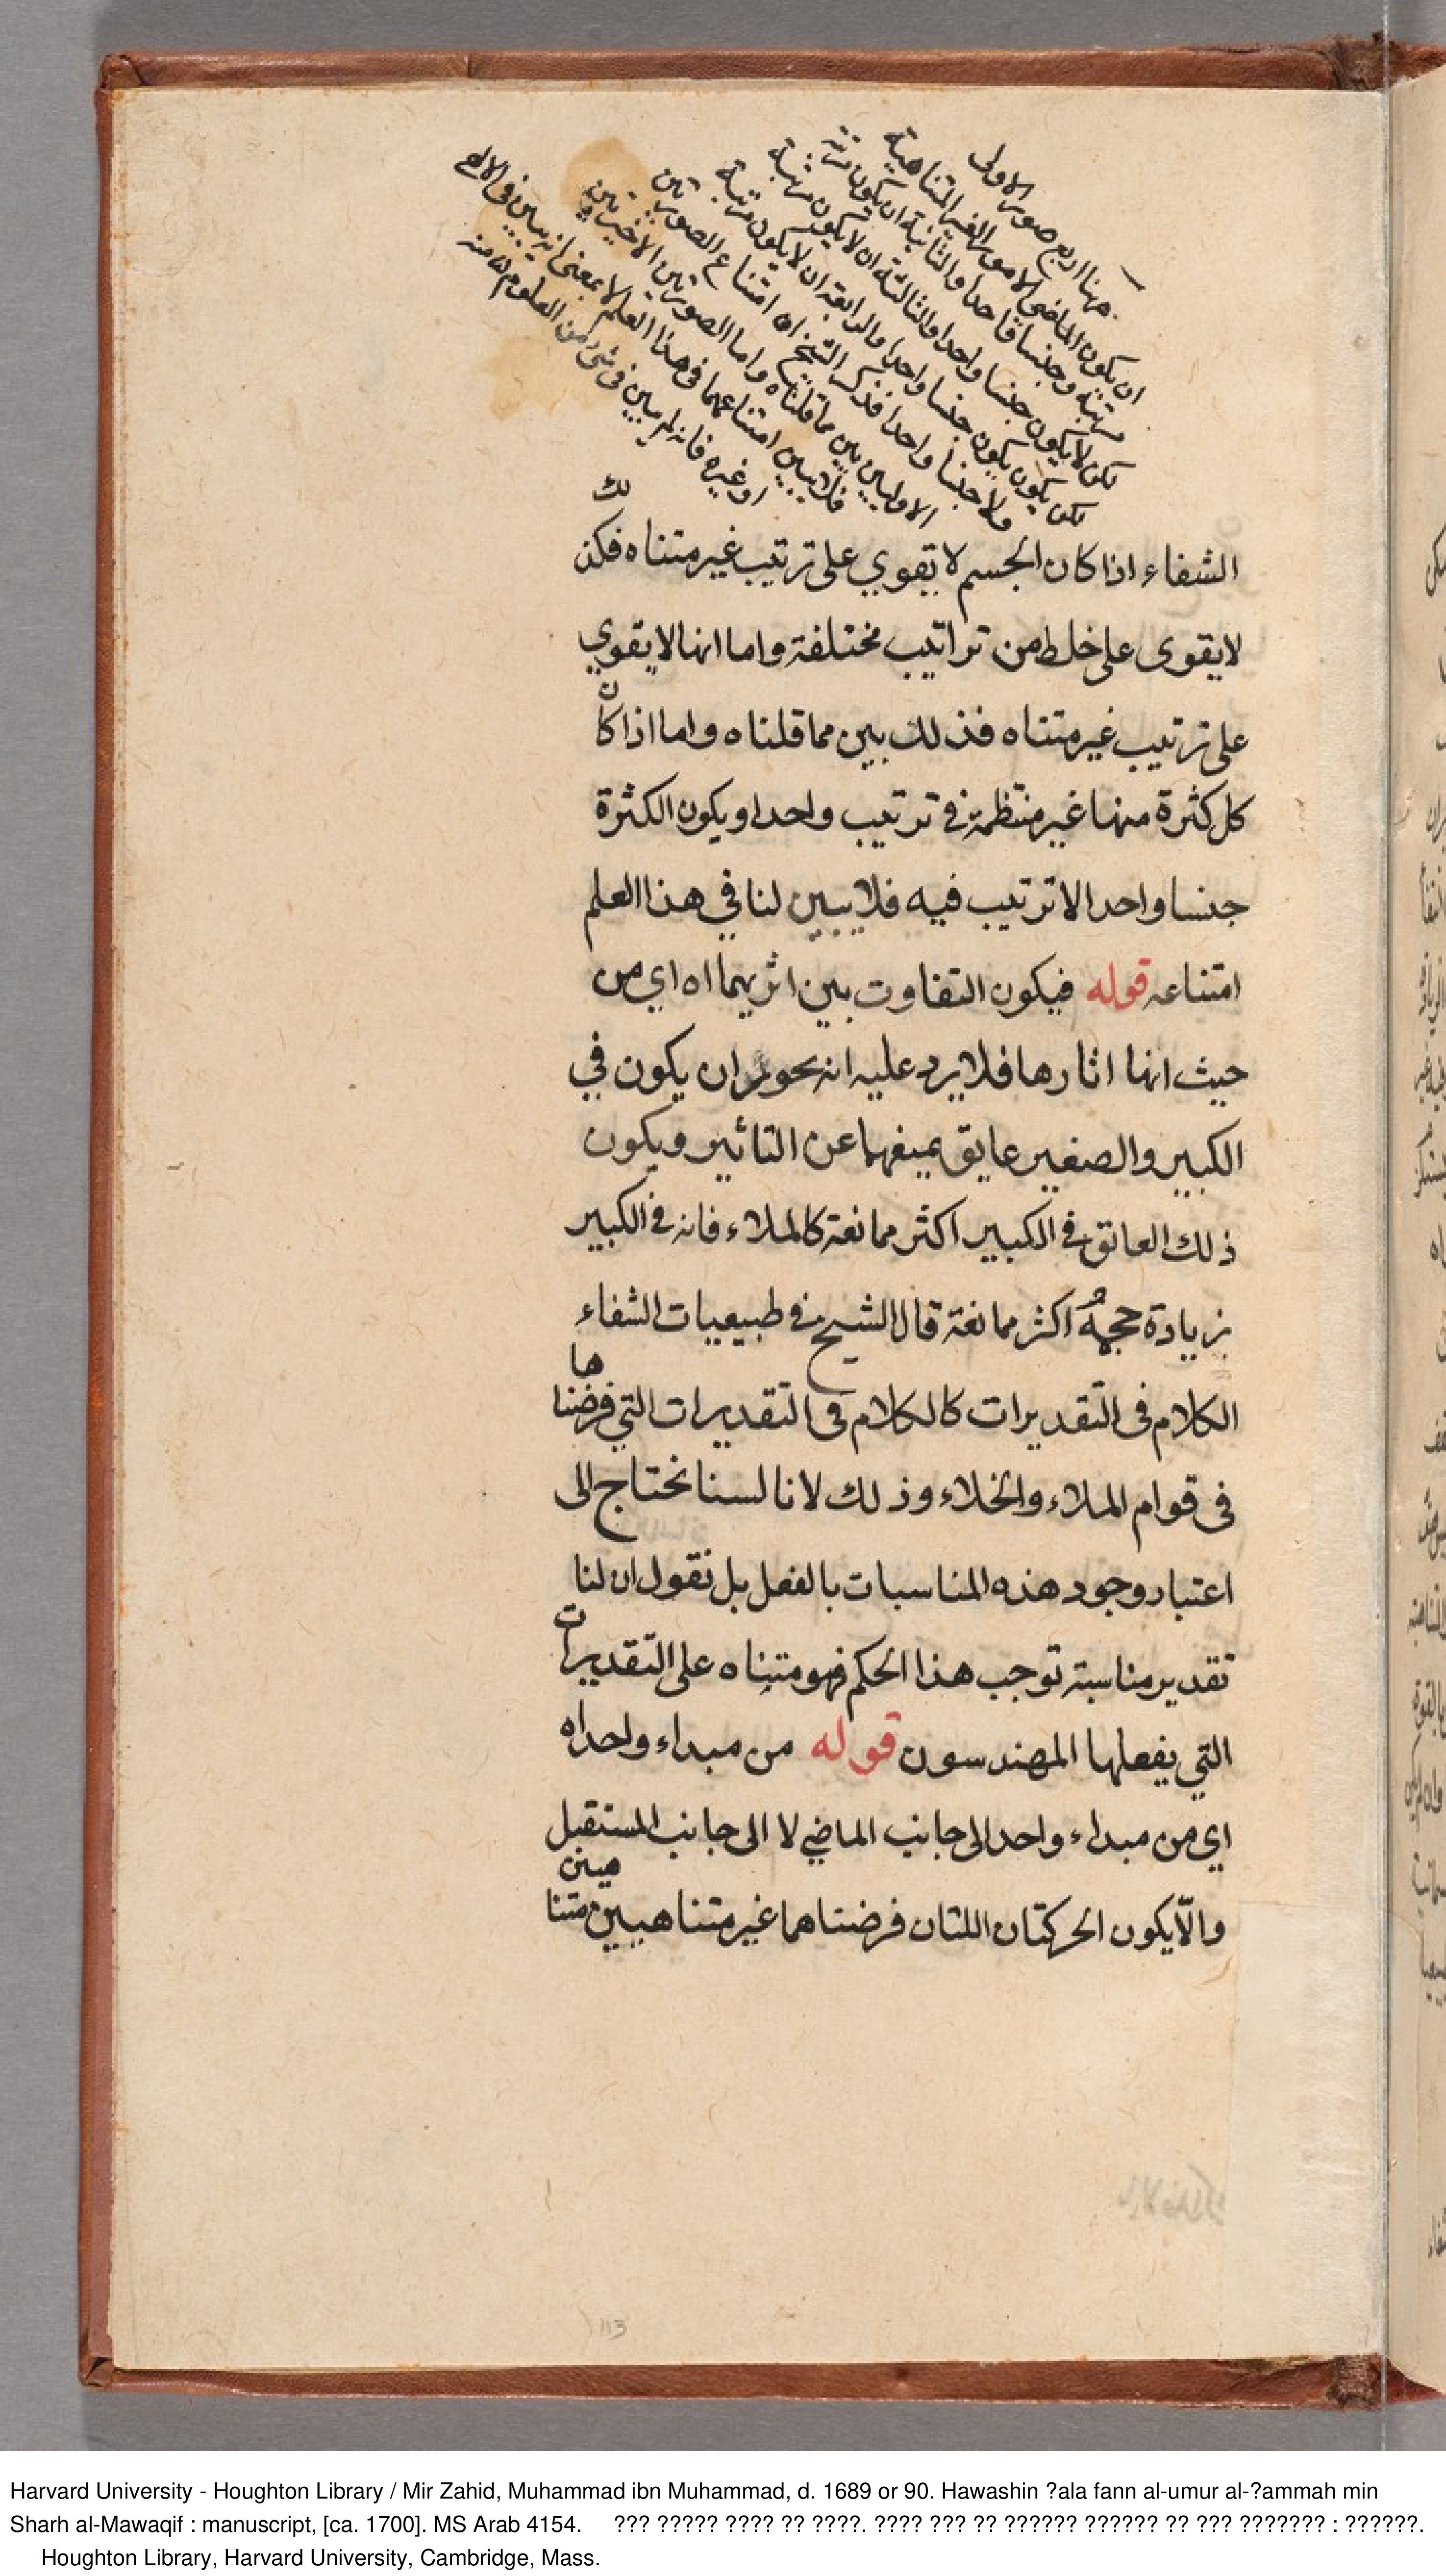 ههنا اربع صور الاولى
ان يكون الماضى الامور الغير المتناهية
مرتبة وجنسا واحدا والثانية ان يكون مرتبة
لكن لا يكون جنسا واحدا والثالثة ان لا يكون مرتبة
لكن يكون جنسا واحدا والرابعة ان لا يكون مرتبة
ولا جنسا واحدا فذكر الشيخ ان امتناع الصورتين
الاوليين بين مما قلناه واما الصورتين الاخيرتين
فلا يبين امتناعهما فى هذا العلم لا بمعنى انه يبين فى الالهى
او غيره فانه لم يبين فى شىء من العلوم منه
الشفاء اذا كان الجسم لا يقوي على ترتيب غير متناه فكذلك
لا يقوى على خلط من تراتيب مختلفة واما انها لا يقوي
على ترتيب غير متناه فذلك بين مما قلناه واما اذا كان
كل كثرة منها غير منتظمة في ترتيب واحد او يكون الكثرة
جنسا واحدا لا ترتيب فيه فلا يبين لنا في هذا العلم
امتناعه قوله فيكون التفاوت بين اثريهما اه اي من
حيث انها اثارها فلا يرد عليه انه يجوز ان يكون في
الكبير والصغير عايق يمنعهما عن التاثير ويكون
ذلك العائق في الكبير اكثر ممانعة كالملاء فانه في الكبير
بزيادة حجمه اكثر ممانعة قال الشيخ في طبيعيات الشفاء
الكلام فى التقديرات كالكلام فى التقديرات التي فرضناها
فى قوام الملاء والخلاء وذلك لانا لسنا نحتاج الى
اعتبار وجود هذه المناسبات بالفعل بل نقول ان لنا
تقدير مناسبة توجب هذا الحكم فهو متناه على التقديرات
التي يفعلها المهندسون قوله من مبداء واحد اه
اي من مبداء واحد الى جانب الماضي لا الى جانب المستقبل
والّا يكون الحركتان اللتان فرضناهما غير متناهيين متناهيين
113
Harvard University - Houghton Library / Mir Zahid, Muhammad ibn Muhammad, d. 1689 or 90. Hawashin ?ala fann al-umur al-?ammah min
Sharh al-Mawaqif : manuscript, [ca. 1700]. MS Arab 4154. ??? ????? ???? ?? ????. ???? ??? ?? ?????? ?????? ?? ??? ??????? : ??????.
Houghton Library, Harvard University, Cambridge, Mass.